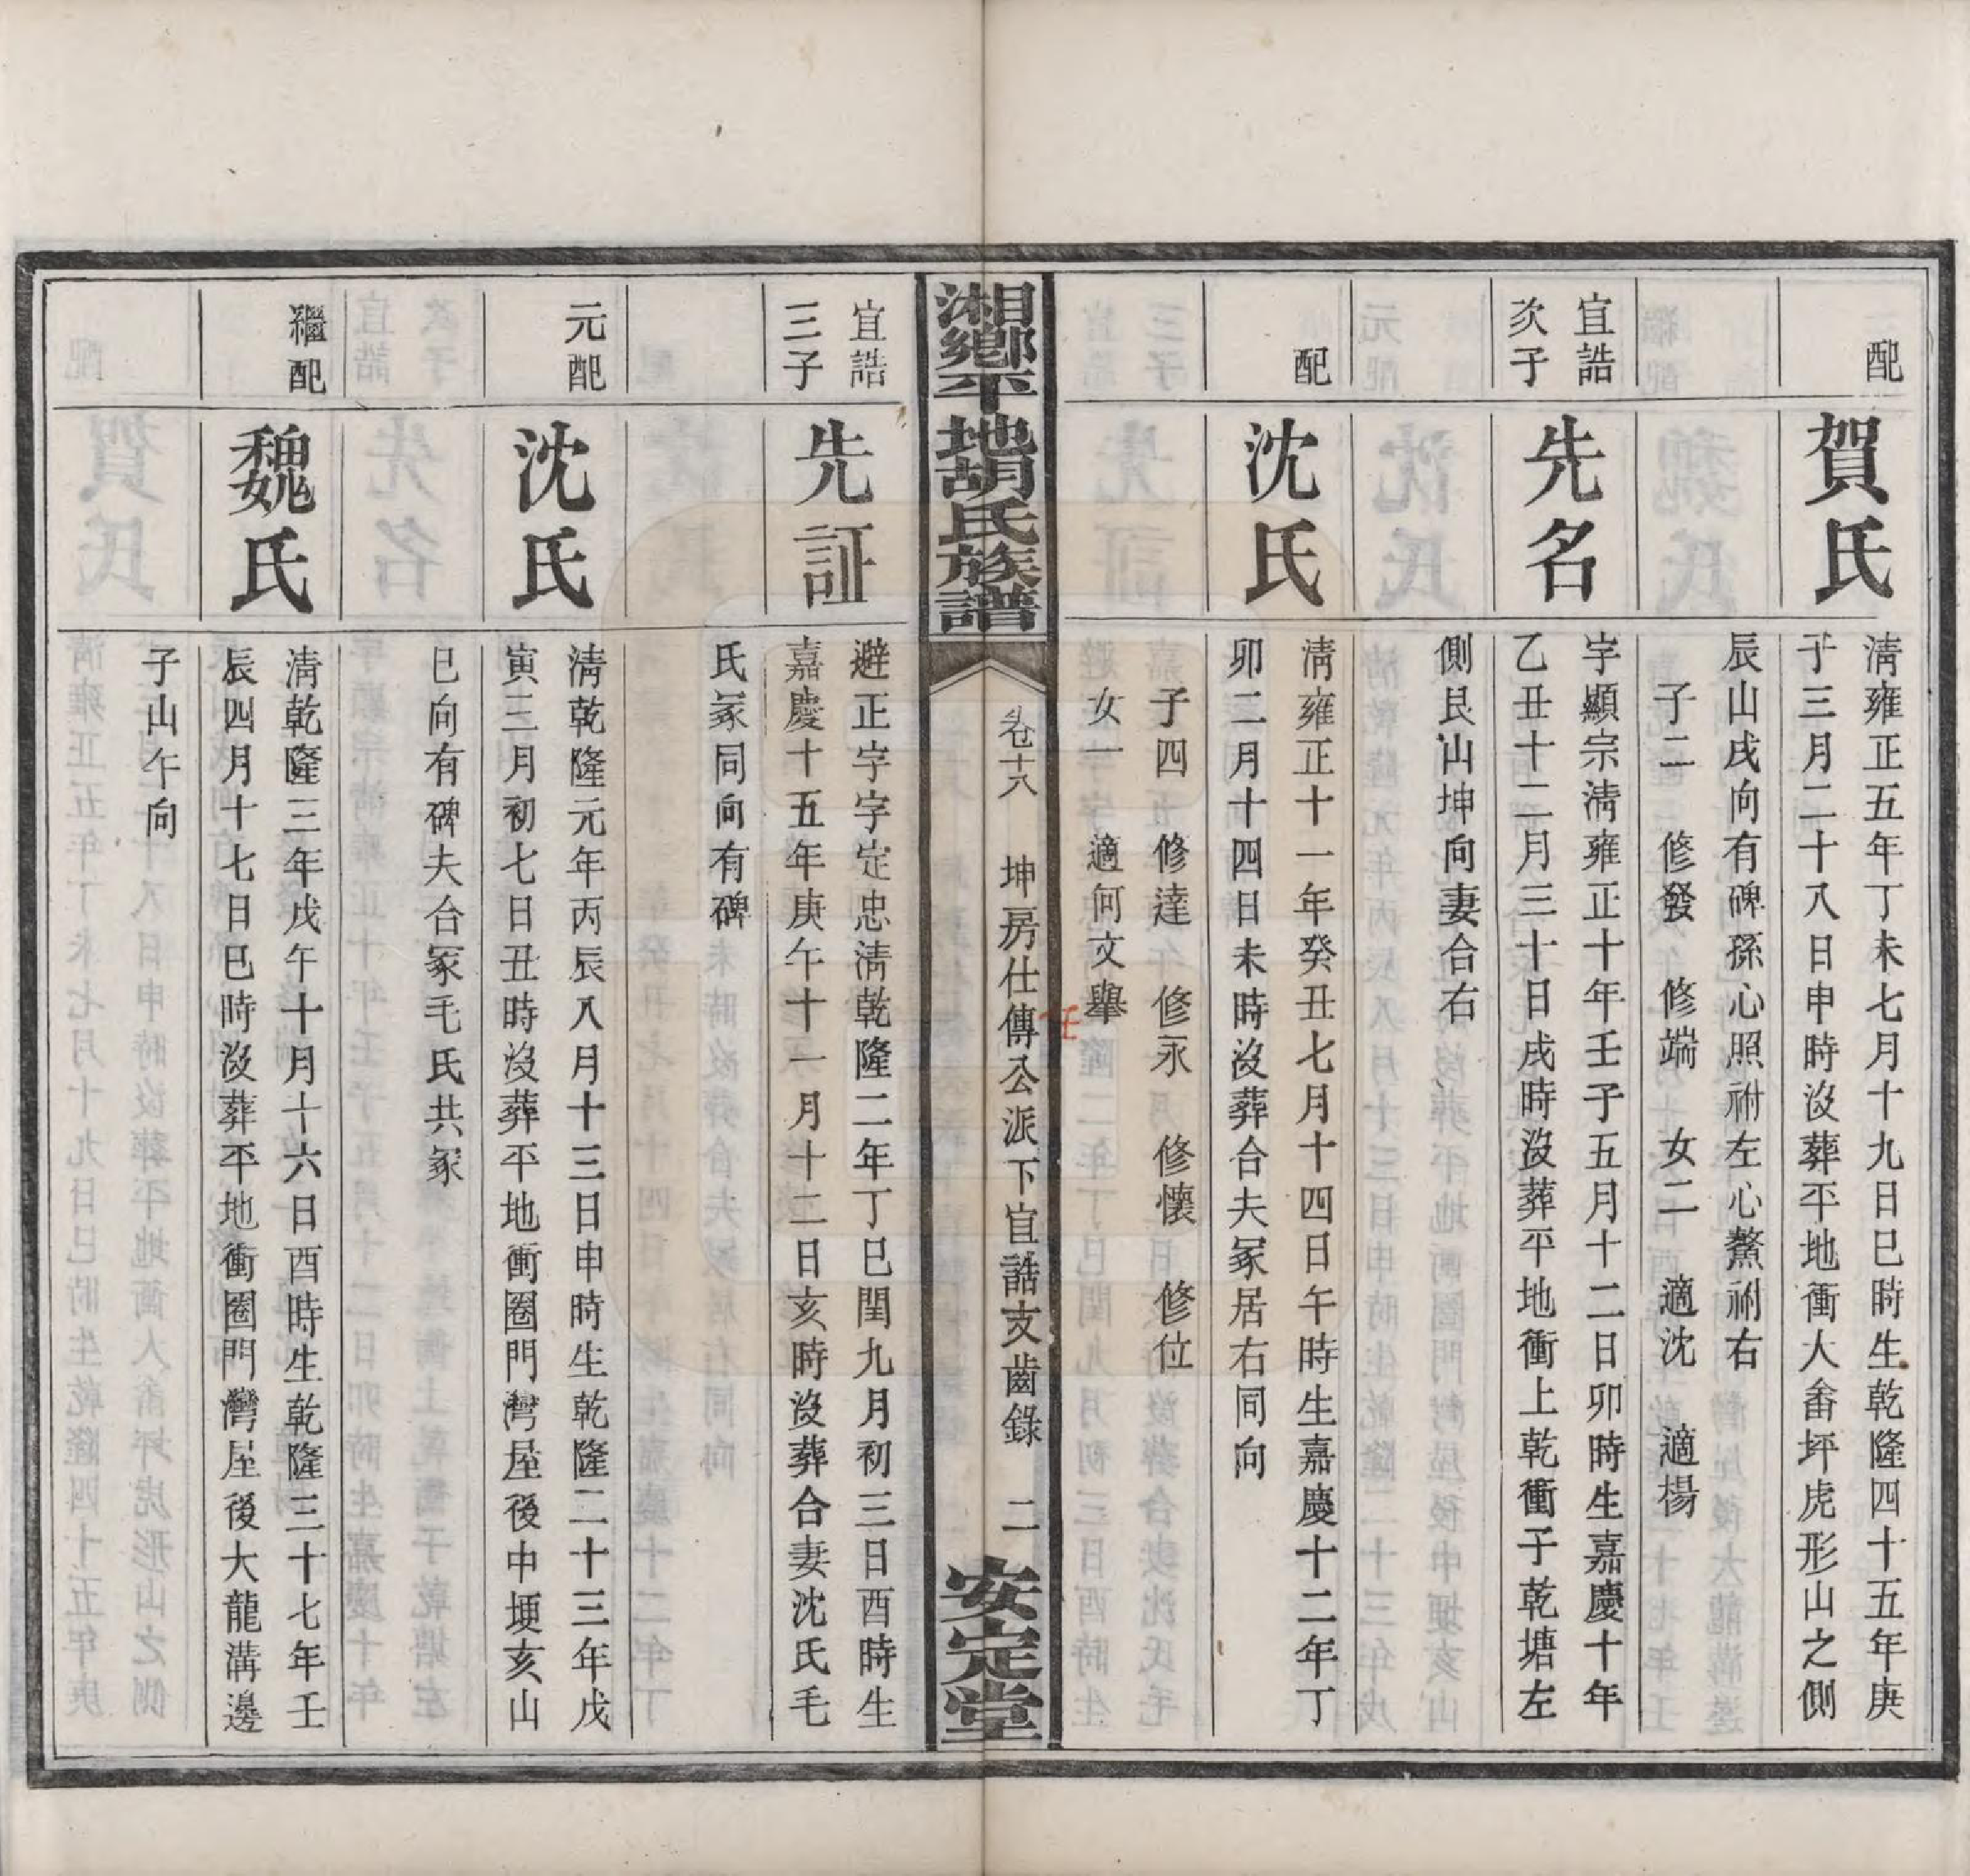 配
賀氏
清雍正五年丁未七月十九日巳時生乾隆四十五年庚
子三月二十八日申時沒葬平地衝人畬坪虎形山之側
辰山戌向有碑孫心照祔左心鰲祔右
子二 修發 修端 女二 適沈 適楊
宜誥
次子
先名
字顯宗清雍正十年壬子五月十二日卯時生嘉慶十年
乙丑十二月三十日戌時沒葬平地衝上乾衝子乾塘左
側艮山坤向妻合右
配
沈氏
清雍正十一年癸丑七月十四日午時生嘉慶十二年丁
卯二月十四日未時沒葬合夫冢居右同向
子四 修達 修永 修懷 修位
女一 適何文舉
任
湘鄉平地胡氏族譜
卷十八 坤房仕傳公派下宜誥支齒錄 二
安定堂
宜誥
三子
先証
避正字字定忠清乾隆二年丁巳閏九月初三日酉時生
嘉慶十五年庚午十一月十二日亥時沒葬合妻沈氏毛
氏冢同向有碑
元配
沈氏
清乾隆元年丙辰八月十三日申時生乾隆二十三年戊
寅三月初七日丑時沒葬平地衝圈門灣屋後中埂亥山
巳向有碑夫合冢毛氏共冢
繼配
魏氏
清乾隆三年戊午十月十六日酉時生乾隆三十七年壬
辰四月十七日巳時沒葬平地衝圈門灣屋後大龍溝邊
子山午向